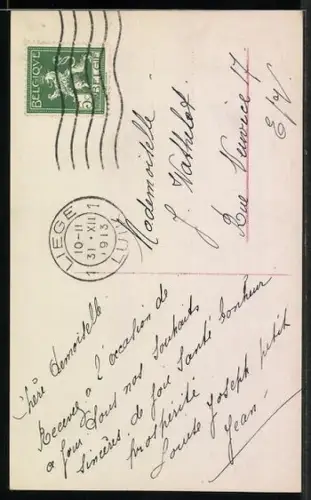 BELGIQUE
5c
LIEGE
1
10-11
31 · XII
1913
1
Mademoiselle
J. Wathelet
Rue 17
E/V.
Chère Demoiselle
Recevez à l'occasion de
ce jour tous nos souhaits
sincères de joie santé bonheur
prospérité
Louise Joseph petit
Jean